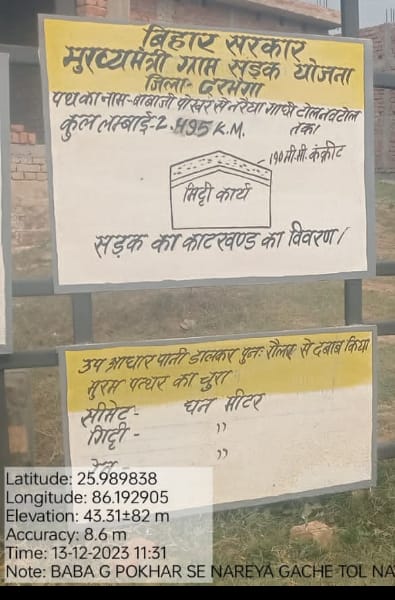 बिहार सरकार
मुख्यमंत्री ग्राम सड़क योजना
जिला-दरभंगा
पथ का नाम-बाबाजी पोखर से नरेया गाछी टोल नवटोल
तक।
कुल लम्बाई-2.495 K.M.
190 मी.मी. कंक्रीट
मिट्टी कार्य
सड़क का काटखण्ड का विवरण।
उप आधार पानी डालकर पुनः रौलर से दबाब किया
मुरम पत्थर का चुरा
सीमेंट- घन मीटर
गिट्टी- "
"
Latitude: 25.989838
Longitude: 86.192905
Elevation: 43.31±82 m
Accuracy: 8.6 m
Time: 13-12-2023 11:31
Note: BABA G POKHAR SE NAREYA GACHE TOL NA